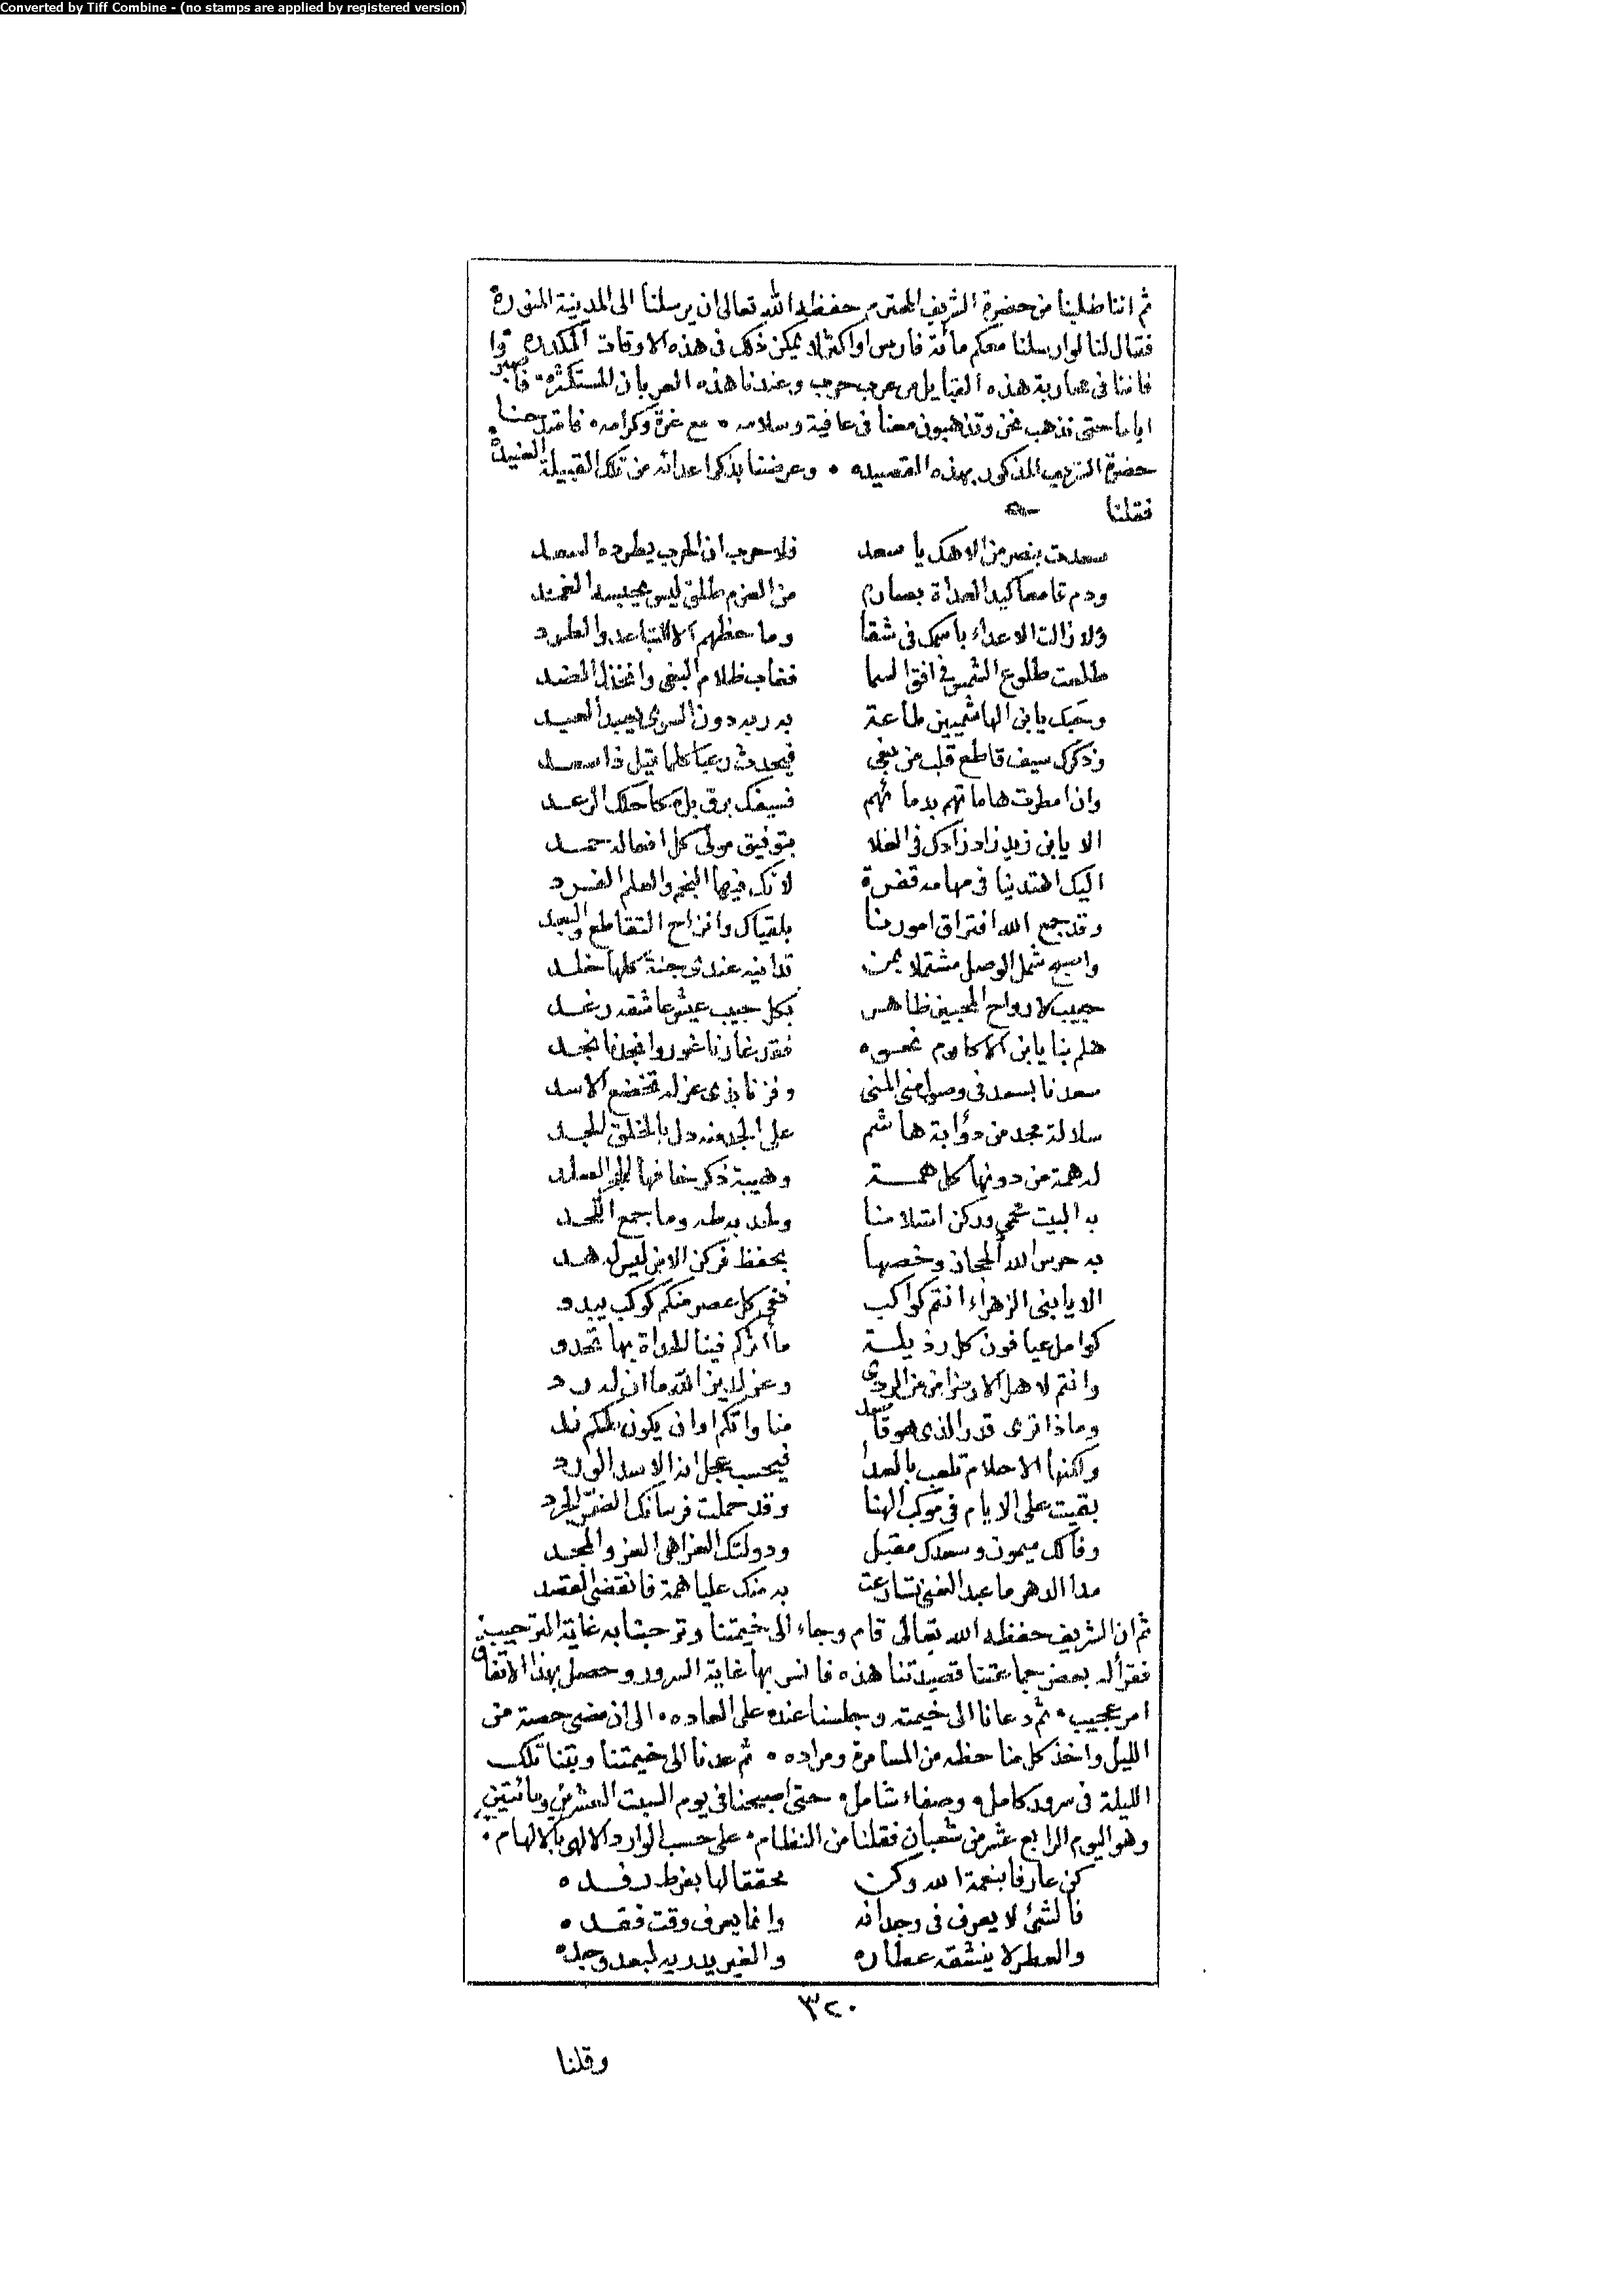 Converted by Tiff Combine - (no stamps are applied by registered version)
ثم اننا طلبنا من حضرة الشريف المحترم حفظه الله تعالى ان يرسلنا الى المدينة المنورة
فقال لنا لو ارسلنا معكم مائة فارس او اكثر لا يمكن ذلك في هذه الاوقات المكدره
فاننا في محاربة هذه القبايل من عرب حرب وعندنا هذه العربان المستكثره
اياما حتى نذهب نحن وتذهبون معنا في عافية وسلامه مع عزة وكرامه فامتدحنا
حضرة الشريف المذكور بهذه القصيده وعرضنا بذكر اعدائه من تلك القبيلة العنيدة
فقلنا
سعدت بنصر من الاهك يا سعد فلا حرب ان الحرب يطرده السعد
ودم قامعا كيد العداة بصارم من العزم طلق ليس يحبسه الغمد
ولا زالت الاعداء باسمك في شقا وما حظهم الا التباعد والطرد
طلعت طلوع الشمس في افق السما فغاب ظلام البغي وانخذل الضد
وحبك يا ابن الهاشميين طاعة به ربه دون السوى يعبد العبد
وذكرك سيف قاطع قلب من بغى فيحدث رعبا كلما قيل ذا سعد
وان امطرت هاماتهم بدمائهم فسيفك برق بل كما حلك الرعد
الا يا ابن زيد زاد زادك في العلا بتوفيق مولى كل افعاله حمد
اليك اهتدينا في مهامه قفرة لانك فيها النجم والعلم الفرد
وقد جمع الله افتراق امورنا بلقياك وانزاح التقاطع والبعد
واصبح شمل الوصل مشتملا بمن تدانيه عندي جنة كلها خلد
حبيب لارواح المحبين ظاهر بكل حبيب عيش عاشقه رغد
هلم بنا يا ابن الاكارم نحوه فقد غارنا غور وانجدنا نجد
سعدنا بسعد في وصول منى المنى وفزنا بذي عز له تخضع الاسد
سلالة مجد من دؤابة هاشم على الجد منه دل بالخلق المجد
له همة من دونها كل همة وهيبة ذكر خافها الحجر الصلد
به البيت محمي وركن استلامنا وطه به طه وما جمع اللحد
به حرس الله الحجاز وخصها بحفظ فركن الامن ليس له هد
الا يا بني الزهراء انتم كواكب ففي كل عصر منكم كوكب يبدو
كوامل عيافون كل رذيلة مآثركم فينا الحداة بها تحدو
وانتم لاهل الارض امن من الردى وعز لدين الله ما ان له رد
وماذا ترى قدر الذي هو قاصد مناواتكم او ان يكون لكم ند
ولكنها الاحلام تلعب بالعدا فيحسب عجل انه الاسد الورد
بقيت على الايام في موكب الهنا وقد حملت فرسانك الضمر الجرد
وفالك ميمون وسعدك مقبل ودولتك الغرا هي العز والمجد
مدا الدهر ما عبد الغني تسارعت به منك عليا همة فانقضى القصد
ثم ان الشريف حفظه الله تعالى قام وجاء الى خيمتنا وترحبنا به غاية الترحيب
فقرأ له بعض جماعتنا قصيدتنا هذه فانسر بها غاية السرور وحصل بهذا الاتفاق
امر عجيب ثم دعانا الى خيمته وجلسنا عنده على العاده الى ان مضى حصة من
الليل واخذ كل منا حظه من المسامرة ومراده ثم عدنا الى خيمتنا وبتنا تلك
الليلة في سرور كامل وصفاء شامل حتى اصبحنا في يوم السبت العشرين ومائتين
وهو اليوم الرابع عشر من شعبان فقلنا من النظام على حسب الوارد الالهي بالالهام
كن عارفا بنعمة الله وكن محققا لها بفرط رفده
فالشئ لا يعرف في وجدانه وانما يعرف وقت فقده
والعطر لا ينشقه عطاره والغير يدريه لبعد وجده
٣٢٠
وقلنا